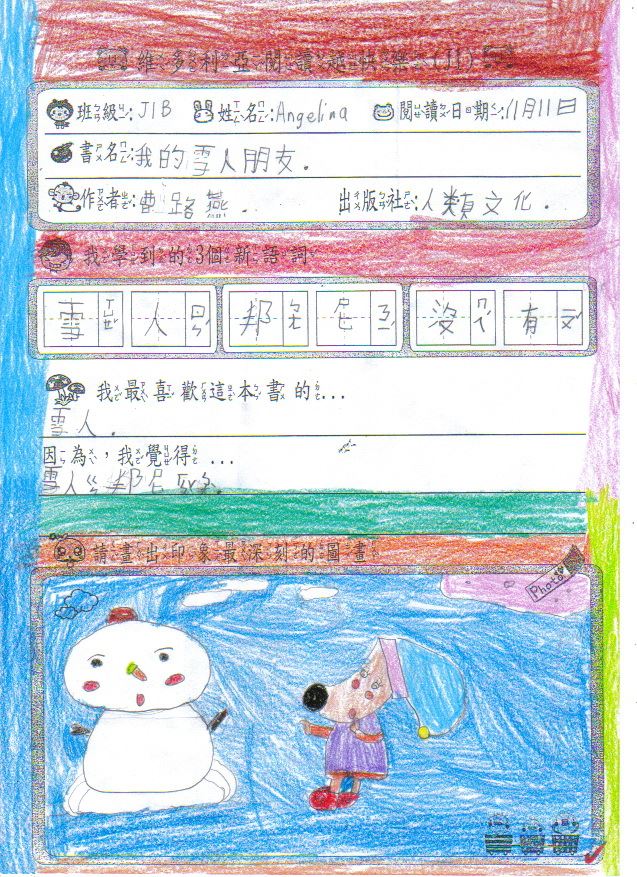 維多利亞閱讀越快樂(J1)
班級:J1B 姓名:Angelina 閱讀日期:11月11日
書名:我的雪人朋友.
作者:曹路燕. 出版社:人類文化.
我學到的3個新語詞
雪ㄒㄩㄝˇ 人ㄖㄣˊ 邦ㄅㄤ 尼ㄋㄧˊ 沒ㄇㄟˊ 有ㄧㄡˇ
我最喜歡這本書的...
雪人.
因為,我覺得...
雪人
邦尼
請畫出印象最深刻的圖畫
Photo